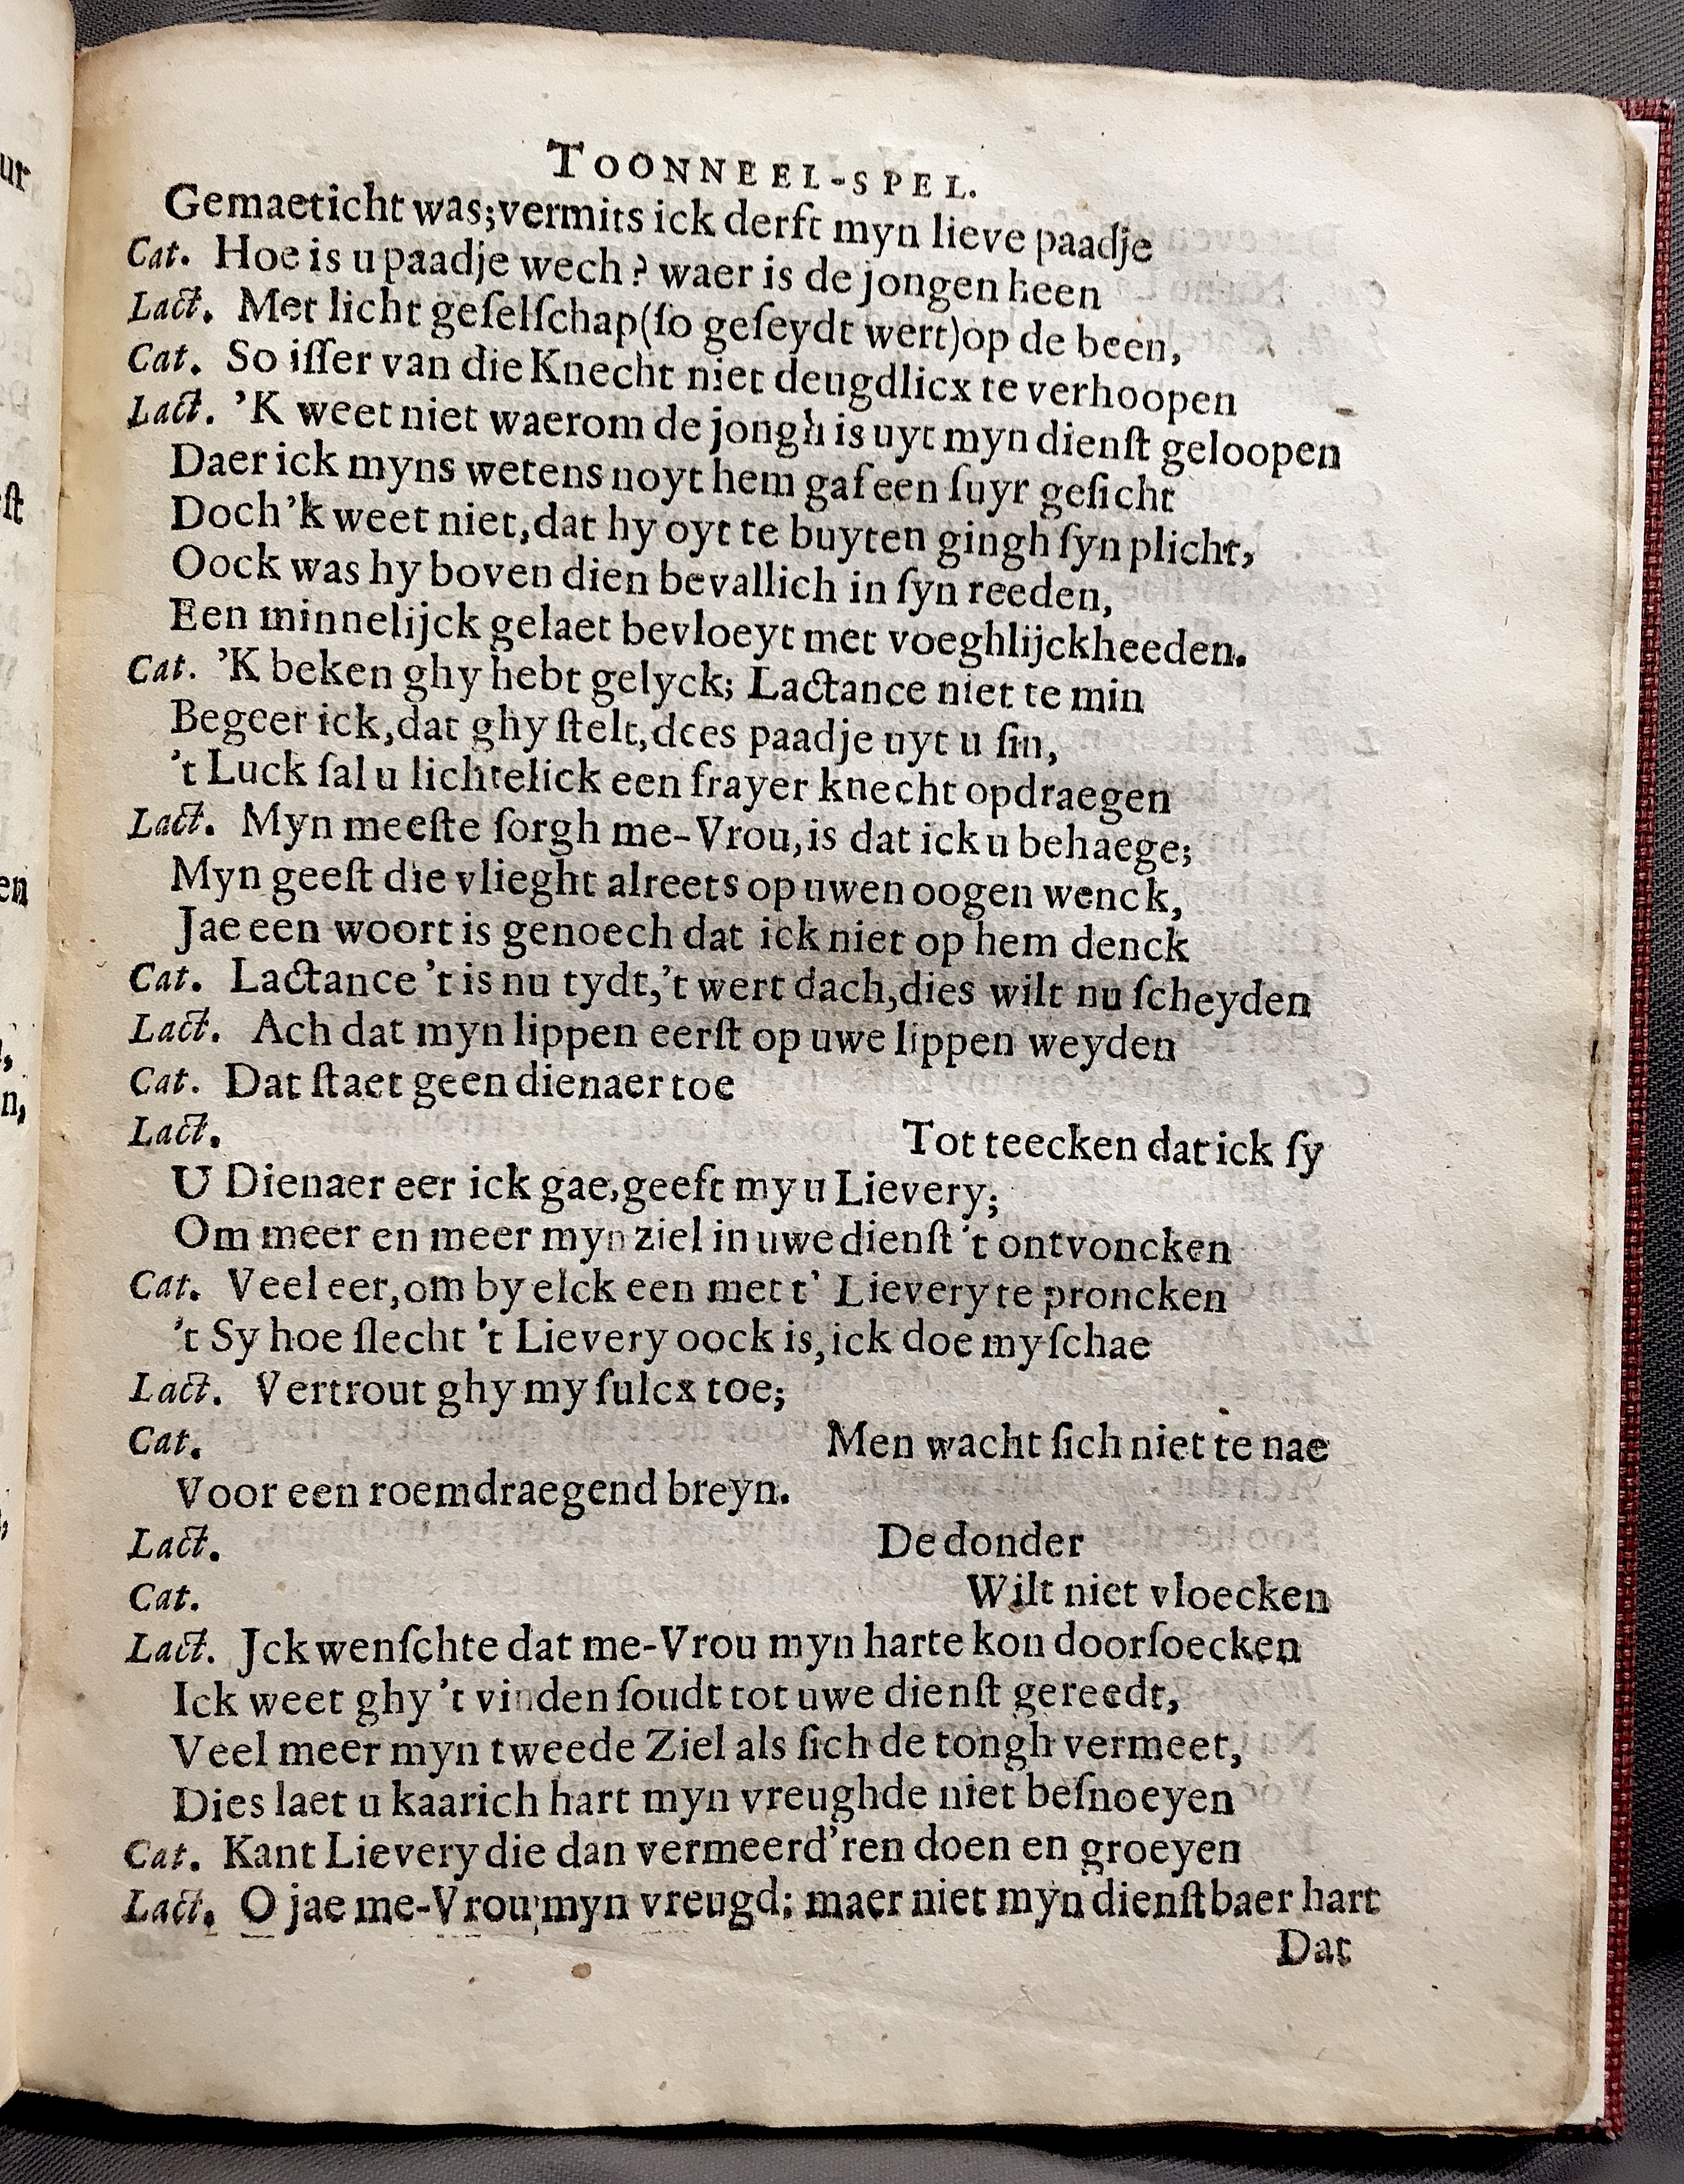 TOONNEEL-SPEL.
Gemaeticht was; vermits ick derft myn lieve paadje
Cat. Hoe is u paadje wech? waer is de jongen heen
Lact. Met licht geſelſchap (ſo geſeydt wert) op de been,
Cat. So iſſer van die Knecht niet deugdlicx te verhoopen
Lact. 'K weet niet waerom de jongh is uyt myn dienſt geloopen
Daer ick myns wetens noyt hem gaf een ſuyr geſicht
Doch 'k weet niet, dat hy oyt te buyten gingh ſyn plicht,
Oock was hy boven dien bevallich in ſyn reeden,
Een minnelijck gelaet bevloeyt met voeghlijckheeden.
Cat. 'K beken ghy hebt gelyck; Lactance niet te min
Begeer ick, dat ghy ſtelt, dees paadje uyt u ſin,
't Luck ſal u lichtelick een frayer knecht opdraegen
Lact. Myn meeſte ſorgh me-Vrou, is dat ick u behaege;
Myn geeſt die vlieght alreets op uwen oogen wenck,
Jae een woort is genoech dat ick niet op hem denck
Cat. Lactance 't is nu tydt, 't wert dach, dies wilt nu ſcheyden
Lact. Ach dat myn lippen eerſt op uwe lippen weyden
Cat. Dat ſtaet geen dienaer toe
Lact. Tot teecken dat ick ſy
U Dienaer eer ick gae, geeft my u Lievery;
Om meer en meer myn ziel in uwe dienſt 't ontvoncken
Cat. Veel eer, om by elck een met t' Lievery te proncken
't Sy hoe ſlecht 't Lievery oock is, ick doe my ſchae
Lact. Vertrout ghy my ſulcx toe;
Cat. Men wacht ſich niet te nae
Voor een roemdraegend breyn.
Lact. De donder
Cat. Wilt niet vloecken
Lact. Jck wenſchte dat me-Vrou myn harte kon doorſoecken
Ick weet ghy 't vinden ſoudt tot uwe dienſt gereedt,
Veel meer myn tweede Ziel als ſich de tongh vermeet,
Dies laet u kaarich hart myn vreughde niet beſnoeyen
Cat. Kant Lievery die dan vermeerd'ren doen en groeyen
Lact. O jae me-Vrou; myn vreugd; maer niet myn dienſtbaer hart
Dat